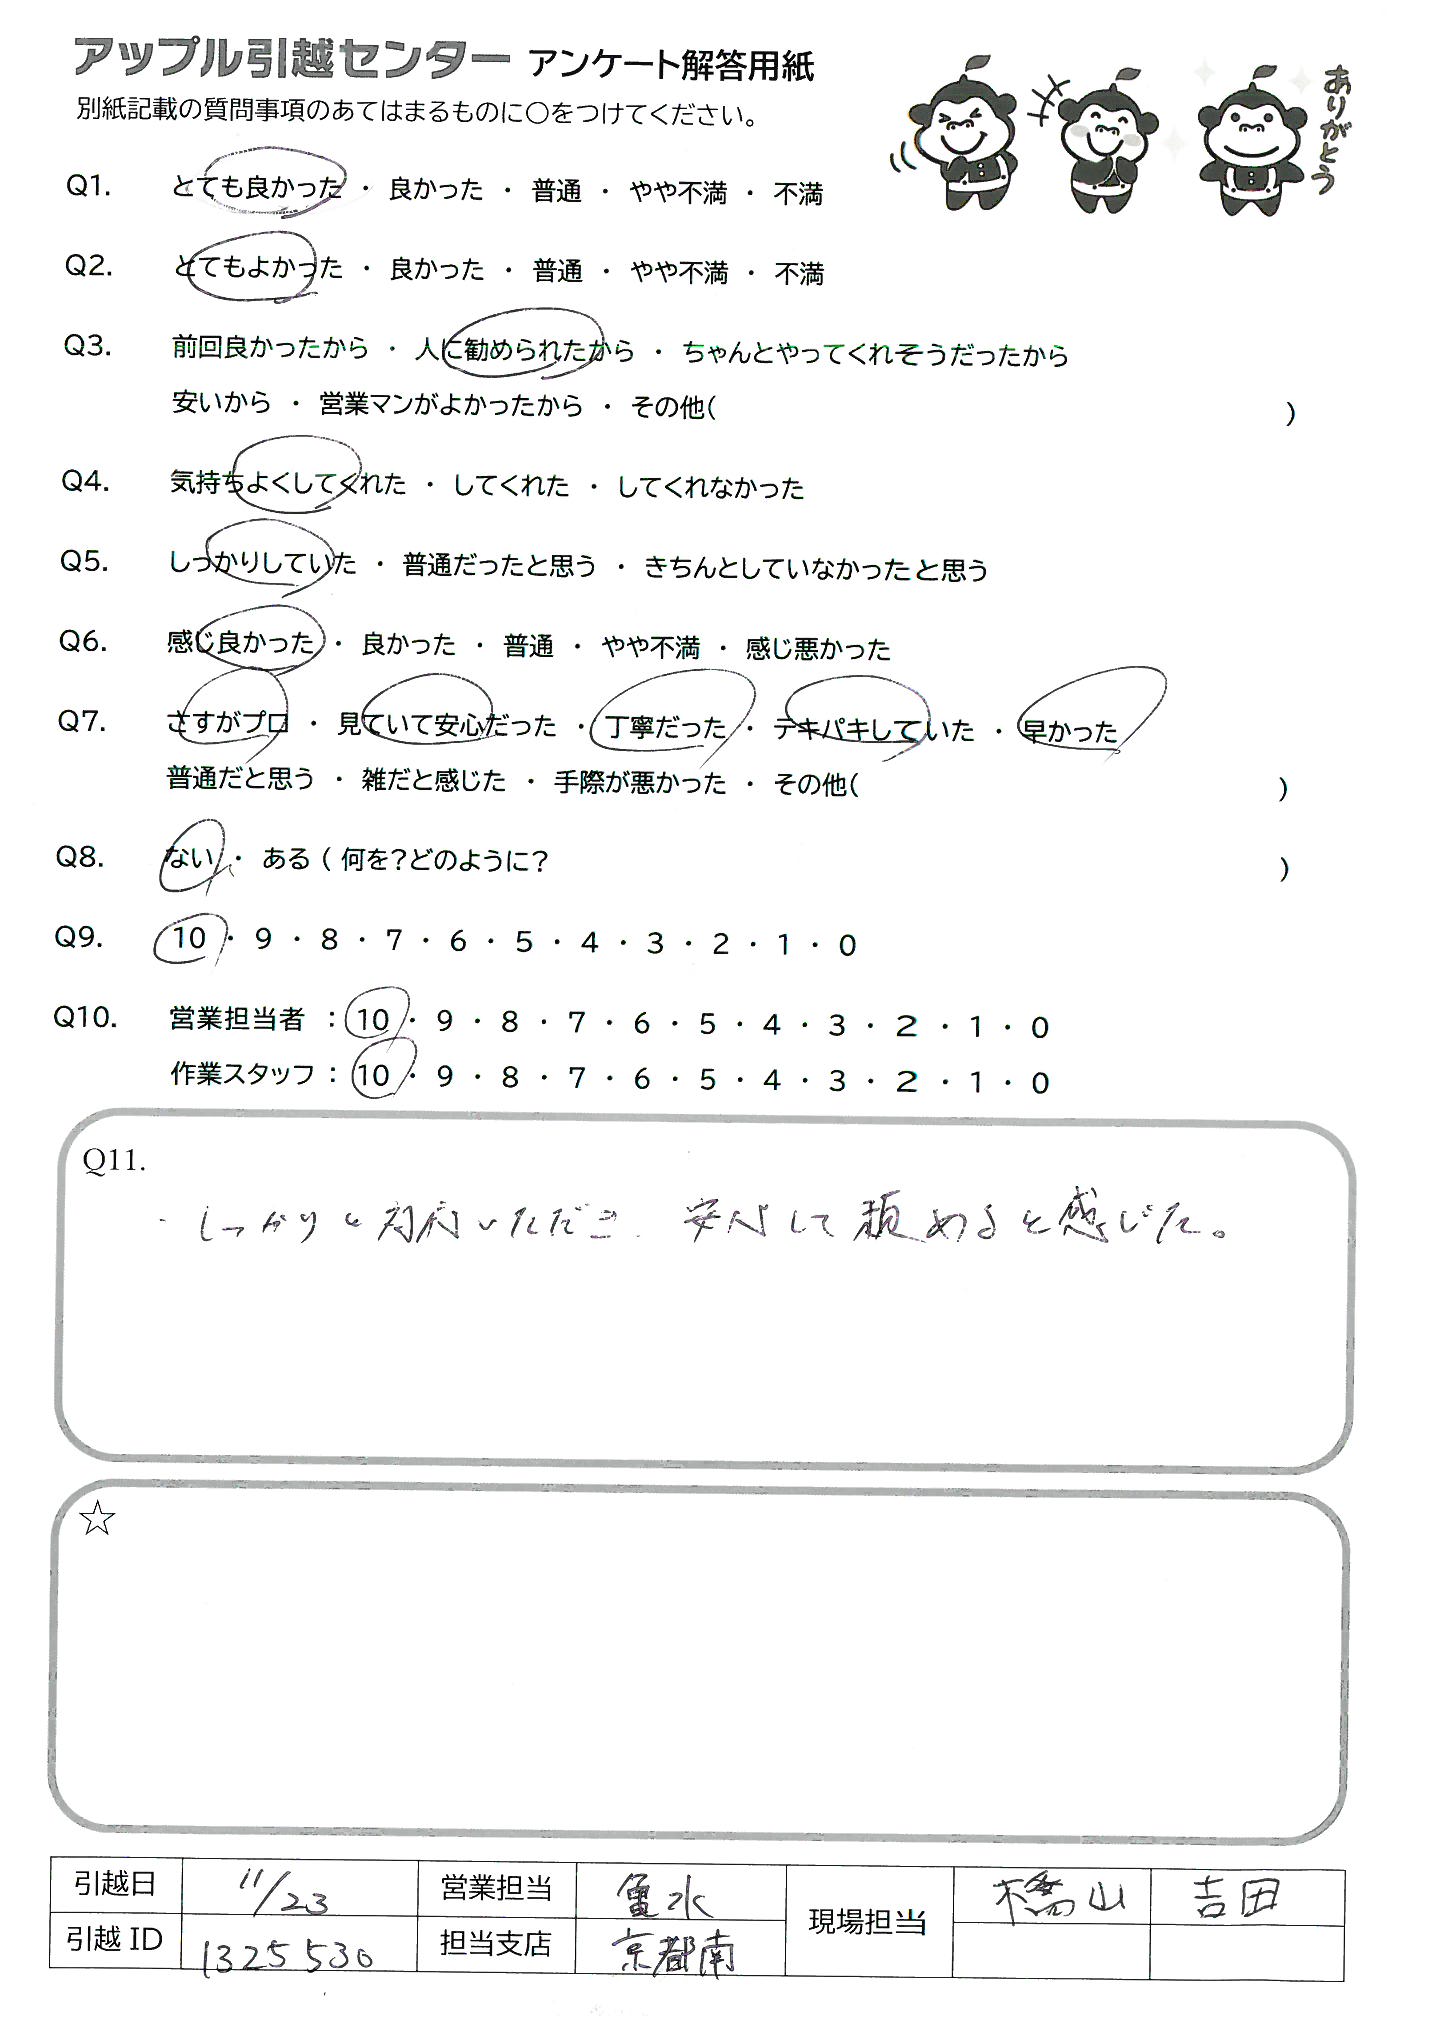 アップル引越センター アンケート解答用紙
別紙記載の質問事項のあてはまるものに〇をつけてください。
ありがとう
Q1. とても良かった ・ 良かった ・ 普通 ・ やや不満 ・ 不満
Q2. とてもよかった ・ 良かった ・ 普通 ・ やや不満 ・ 不満
Q3. 前回良かったから ・ 人に勧められたから ・ ちゃんとやってくれそうだったから
安いから ・ 営業マンがよかったから ・ その他( )
Q4. 気持ちよくしてくれた ・ してくれた ・ してくれなかった
Q5. しっかりしていた ・ 普通だったと思う ・ きちんとしていなかったと思う
Q6. 感じ良かった ・ 良かった ・ 普通 ・ やや不満 ・ 感じ悪かった
Q7. さすがプロ ・ 見ていて安心だった ・ 丁寧だった ・ テキパキしていた ・ 早かった
普通だと思う ・ 雑だと感じた ・ 手際が悪かった ・ その他( )
Q8. ない ・ ある ( 何を?どのように? )
Q9. 10 ・ 9 ・ 8 ・ 7 ・ 6 ・ 5 ・ 4 ・ 3 ・ 2 ・ 1 ・ 0
Q10. 営業担当者 : 10 ・ 9 ・ 8 ・ 7 ・ 6 ・ 5 ・ 4 ・ 3 ・ 2 ・ 1 ・ 0
作業スタッフ : 10 ・ 9 ・ 8 ・ 7 ・ 6 ・ 5 ・ 4 ・ 3 ・ 2 ・ 1 ・ 0
Q11.
・しっかりと対応いただき、安心して頼めると感じた。
☆
引越日 11/23 営業担当 亀水 現場担当 橋山 吉田
引越 ID 1325530 担当支店 京都南